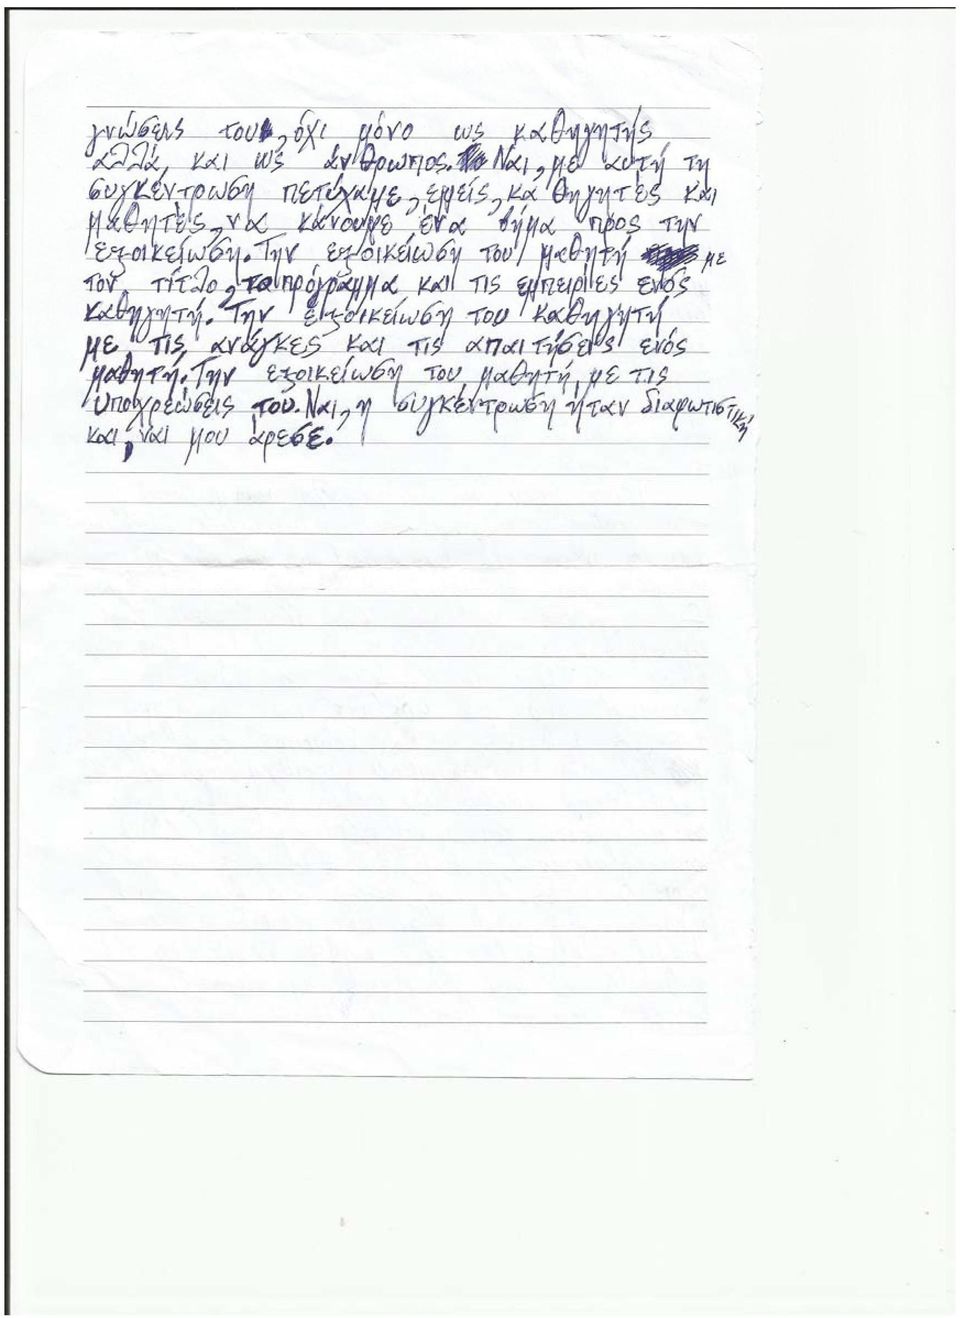 γνώσεις του, όχι μόνο ως καθηγητής
αλλά, και ως άνθρωπος. Ναι, με αυτή τη
συγκέντρωση πετύχαμε, εμείς, καθηγητές και
μαθητές, να κάνουμε ένα βήμα προς την
εξοικείωση. Την εξοικείωση του μαθητή με
τον τίτλο, το πρόγραμμα και τις εμπειρίες ενός
καθηγητή. Την εξοικείωση του καθηγητή
με τις ανάγκες και τις απαιτήσεις ενός
μαθητή. Την εξοικείωση του μαθητή, με τις
υποχρεώσεις του. Ναι, η συγκέντρωση ήταν διαφωτιστική
και, ναι μου άρεσε.